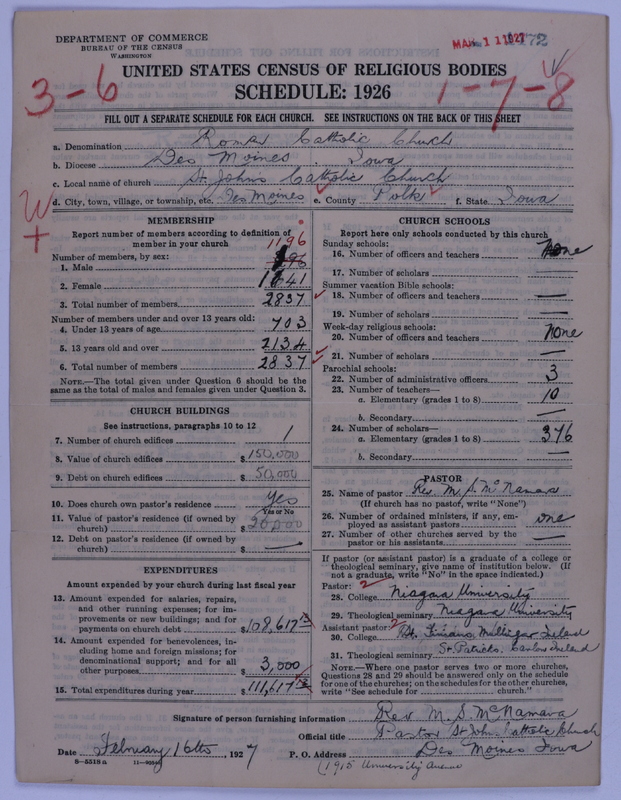 DEPARTMENT OF COMMERCE
BUREAU OF THE CENSUS
WASHINGTON
MAR 11 1927
3-6
UNITED STATES CENSUS OF RELIGIOUS BODIES
SCHEDULE: 1926
1-7-8
FILL OUT A SEPARATE SCHEDULE FOR EACH CHURCH. SEE INSTRUCTIONS ON THE BACK OF THIS SHEET
a. Denomination Roman Catholic Church
b. Diocese Des Moines. Iowa
c. Local name of church St. John's Catholic Church
d. City, town, village, or township, etc. Des Moines e. County Polk f. State Iowa
MEMBERSHIP
Report number of members according to definition of
member in your church
Number of members, by sex:
1196
1. Male
2. Female 1641
3. Total number of members 2837
Number of members under and over 13 years old:
4. Under 13 years of age 703
5. 13 years old and over 2134
6. Total number of members 2837
NOTE.—The total given under Question 6 should be the
same as the total of males and females given under Question 3.
CHURCH BUILDINGS
See instructions, paragraphs 10 to 12
7. Number of church edifices 1
8. Value of church edifices $150,000
9. Debt on church edifices $50,000
10. Does church own pastor's residence Yes
Yes or No
11. Value of pastor's residence (if owned by
church) $20,000
12. Debt on pastor's residence (if owned by
church) $ —
EXPENDITURES
Amount expended by your church during last fiscal year
13. Amount expended for salaries, repairs,
and other running expenses; for im-
provements or new buildings; and for
payments on church debt $108,617
14. Amount expended for benevolences, in-
cluding home and foreign missions; for
denominational support; and for all
other purposes $3,000
15. Total expenditures during year $111,617
CHURCH SCHOOLS
Report here only schools conducted by this church
Sunday schools:
16. Number of officers and teachers None
17. Number of scholars
Summer vacation Bible schools:
18. Number of officers and teachers —
19. Number of scholars —
Week-day religious schools:
20. Number of officers and teachers None
21. Number of scholars —
Parochial schools:
22. Number of administrative officers 3
23. Number of teachers—
a. Elementary (grades 1 to 8) 10
b. Secondary —
24. Number of scholars—
a. Elementary (grades 1 to 8) 376
b. Secondary —
PASTOR
25. Name of pastor Rev. M. S. McNamara
(If church has no pastor, write "None")
26. Number of ordained ministers, if any, em-
ployed as assistant pastors one
27. Number of other churches served by the
pastor or his assistants —
If pastor (or assistant pastor) is a graduate of a college or
theological seminary, give name of institution below. (If
not a graduate, write "No" in the space indicated.)
Pastor: 2
28. College Niagara University
29. Theological seminary Niagara University
Assistant pastor: 2
30. College St. Finians, Mullingar Ireland
31. Theological seminary St Patricks. Carlow Ireland
NOTE.—Where one pastor serves two or more churches,
Questions 28 and 29 should be answered only on the schedule
for one of the churches; on the schedules for the other churches,
write "See schedule for church."
Signature of person furnishing information Rev M. S. McNamara
Official title Pastor St John Catholic Church
Date February 16th, 1927 P. O. Address Des Moines Iowa
(1915 University Avenue